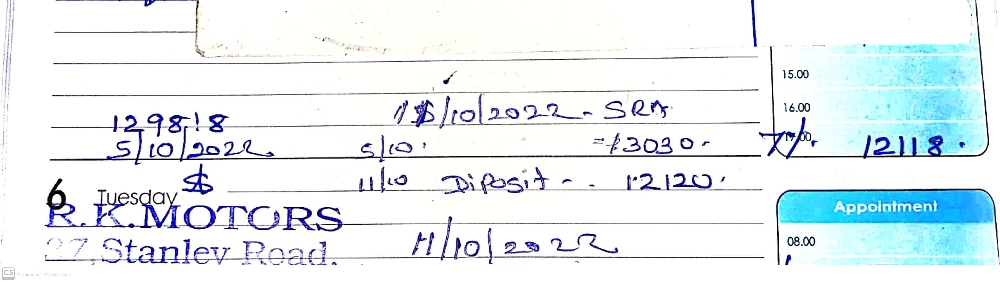 15.00
16.00
/10/2022 - SRA
1298!8
5/10/2022
5/10.
=/3030.-
7%.
12118.
6 Tuesday
11/10 Diposit - . 12120.
R.K.MOTORS
Appointment
27, Stanley Road.
11/10/2022
08.00
CS